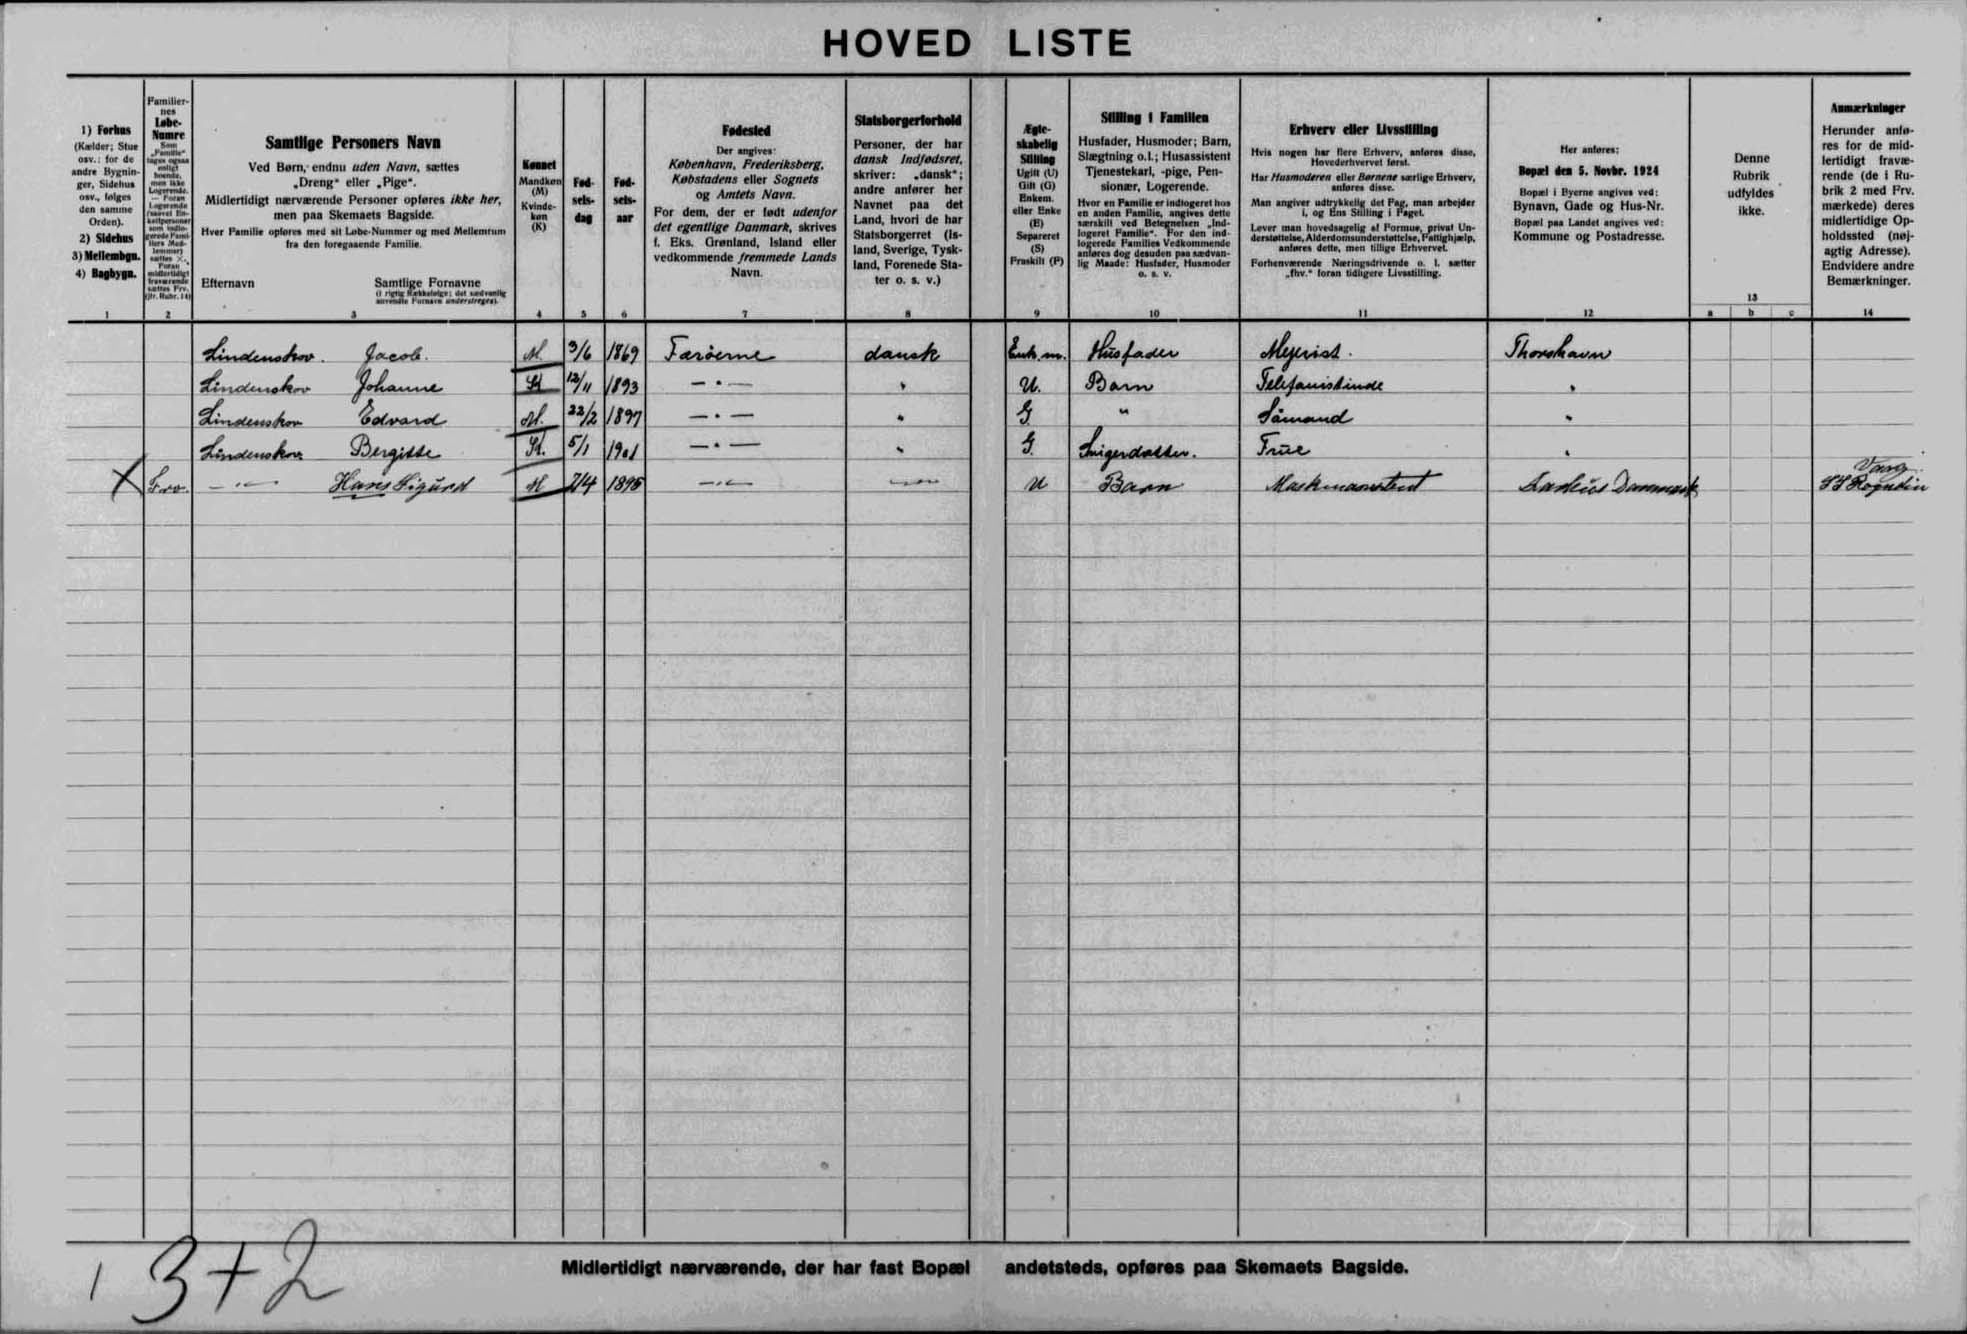 HOVED LISTE
1) Forhus
(Kælder; Stue
osv.: for de
andre Bygnin-
ger, Sidehus
osv., følges
den samme
Orden).
2) Sidehus
3) Mellembgn.
4) Bagbygn.
1
Familier-
nes
Løbe-
Numre
2
Samtlige Personers Navn
Ved Børn, endnu uden Navn, sættes
„Dreng" eller „Pige".
Midlertidigt nærværende Personer opføres ikke her,
men paa Skemaets Bagside.
Hver Familie opføres med sit Løbe-Nummer og med Mellemrum
fra den foregaaende Familie.
Efternavn Samtlige Fornavne
(i rigtig Rækkefølge; det sædvanlig
anvendte Fornavn understreges).
3
Kønnet
Mandkøn
(M)
Kvinde-
køn
(K)
4
Fød-
sels-
dag
5
Fød-
sels-
aar
6
Fødested
Der angives:
København, Frederiksberg,
Købstadens eller Sognets
og Amtets Navn.
For dem, der er født udenfor
det egentlige Danmark, skrives
f. Eks. Grønland, Island eller
vedkommende fremmede Lands
Navn.
7
Statsborgerforhold
Personer, der har
dansk Indfødsret,
skriver: „dansk";
andre anfører her
Navnet paa det
Land, hvori de har
Statsborgerret (Is-
land, Sverige, Tysk-
land, Forenede Sta-
ter o. s. v.)
8
Ægte-
skabelig
Stilling
Ugift (U)
Gift (G)
Enkem.
eller Enke
(E)
Separeret
(S)
Fraskilt (F)
9
Stilling i Familien
Husfader, Husmoder; Barn,
Slægtning o.l.; Husassistent
Tjenestekarl, -pige, Pen-
sionær, Logerende.
Hvor en Familie er indlogeret hos
en anden Familie, angives dette
særskilt ved Betegnelsen „Ind-
logeret Familie". For den ind-
logerede Families Vedkommende
anføres dog desuden paa sædvan-
lig Maade: Husfader, Husmoder
o. s. v.
10
Erhverv eller Livsstilling
Hvis nogen har flere Erhverv, anføres disse,
Hovederhvervet først.
Har Husmoderen eller Børnene særlige Erhverv,
anføres disse.
Man angiver udtrykkelig det Fag, man arbejder
i, og Ens Stilling i Faget.
Lever man hovedsagelig af Formue, privat Un-
derstøttelse, Alderdomsunderstøttelse, Fattighjælp,
anføres dette, men tillige Erhvervet.
Forhenværende Næringsdrivende o. l. sætter
„fhv." foran tidligere Livsstilling.
11
Her anføres:
Bopæl den 5. Novbr. 1924
Bopæl i Byerne angives ved:
Bynavn, Gade og Hus-Nr.
Bopæl paa Landet angives ved:
Kommune og Postadresse.
12
Denne
Rubrik
udfyldes
ikke.
13
a b c
Anmærkninger
Herunder anfø-
res for de mid-
lertidigt fravæ-
rende (de i Ru-
brik 2 med Frv.
mærkede) deres
midlertidige Op-
holdssted (nøj-
agtig Adresse).
Endvidere andre
Bemærkninger.
14
Lindenskov. Jacob. M. 3/6 1869 Færöerne dansk Enk.m. Husfader Mejerist. Thorshavn
Lindenskov Johanne K 12/11 1893 — · — " U. Barn Telefonistinde "
Lindenskov Edvard M. 22/2 1897 — · — " G. " Sömand "
Lindenskov Bergitte K. 5/1 1901 — · — " G. Svigerdatter. Frue "
X Frv. — " — Hans Sigurd M 7/4 1895 — " — — " — U Barn Maskinassistent Aarhus Danmark
3+2
Midlertidigt nærværende, der har fast Bopæl andetsteds, opføres paa Skemaets Bagside.